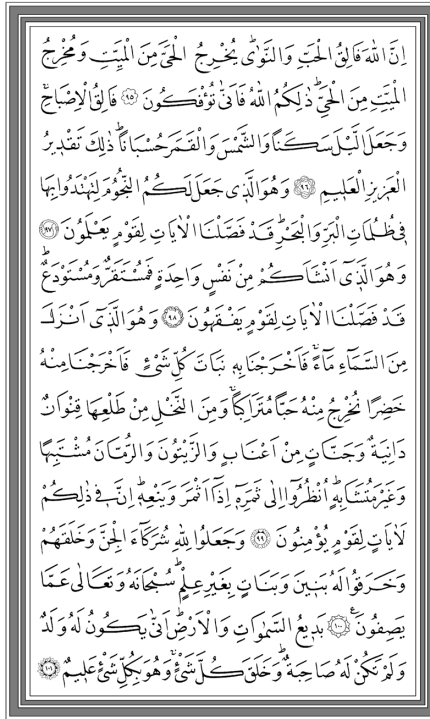 اِنَّ اللّٰهَ فَالِقُ الْحَبِّ وَالنَّوٰىۜ يُخْرِجُ الْحَيَّ مِنَ الْمَيِّتِ وَمُخْرِجُ
الْمَيِّتِ مِنَ الْحَيِّۜ ذٰلِكُمُ اللّٰهُ فَاَنّٰى تُؤْفَكُونَ ﴿٩٥﴾ فَالِقُ الْاِصْبَاحِۚ
وَجَعَلَ الَّيْلَ سَكَناً وَالشَّمْسَ وَالْقَمَرَ حُسْبَاناًۜ ذٰلِكَ تَقْد۪يرُ
الْعَز۪يزِ الْعَل۪يمِ ﴿٩٦﴾ وَهُوَ الَّذ۪ي جَعَلَ لَكُمُ النُّجُومَ لِتَهْتَدُوا بِهَا
ف۪ي ظُلُمَاتِ الْبَرِّ وَالْبَحْرِۜ قَدْ فَصَّلْنَا الْاٰيَاتِ لِقَوْمٍ يَعْلَمُونَ ﴿٩٧﴾
وَهُوَ الَّذ۪ٓي اَنْشَاَكُمْ مِنْ نَفْسٍ وَاحِدَةٍ فَمُسْتَقَرٌّ وَمُسْتَوْدَعٌۜ
قَدْ فَصَّلْنَا الْاٰيَاتِ لِقَوْمٍ يَفْقَهُونَ ﴿٩٨﴾ وَهُوَ الَّذ۪ٓي اَنْزَلَ
مِنَ السَّمَٓاءِ مَٓاءًۚ فَاَخْرَجْنَا بِه۪ نَبَاتَ كُلِّ شَيْءٍ فَاَخْرَجْنَا مِنْهُ
خَضِراً نُخْرِجُ مِنْهُ حَباًّ مُتَرَاكِباًۚ وَمِنَ النَّخْلِ مِنْ طَلْعِهَا قِنْوَانٌ
دَانِيَةٌ وَجَنَّاتٍ مِنْ اَعْنَابٍ وَالزَّيْتُونَ وَالرُّمَّانَ مُشْتَبِهاً
وَغَيْرَ مُتَشَابِهٍۜ اُنْظُرُٓوا اِلٰى ثَمَرِه۪ٓ اِذَٓا اَثْمَرَ وَيَنْعِه۪ۜ اِنَّ ف۪ي ذٰلِكُمْ
لَاٰيَاتٍ لِقَوْمٍ يُؤْمِنُونَ ﴿٩٩﴾ وَجَعَلُوا لِلّٰهِ شُرَكَٓاءَ الْجِنَّ وَخَلَقَهُمْ
وَخَرَقُوا لَهُ بَن۪ينَ وَبَنَاتٍ بِغَيْرِ عِلْمٍۜ سُبْحَانَهُ وَتَعَالٰى عَمَّا
يَصِفُونَ۟ ﴿١٠٠﴾ بَد۪يعُ السَّمٰوَاتِ وَالْاَرْضِۜ اَنّٰى يَكُونُ لَهُ وَلَدٌ
وَلَمْ تَكُنْ لَهُ صَاحِبَةٌۜ وَخَلَقَ كُلَّ شَيْءٍۚ وَهُوَ بِكُلِّ شَيْءٍ عَل۪يمٌ ﴿١٠١﴾